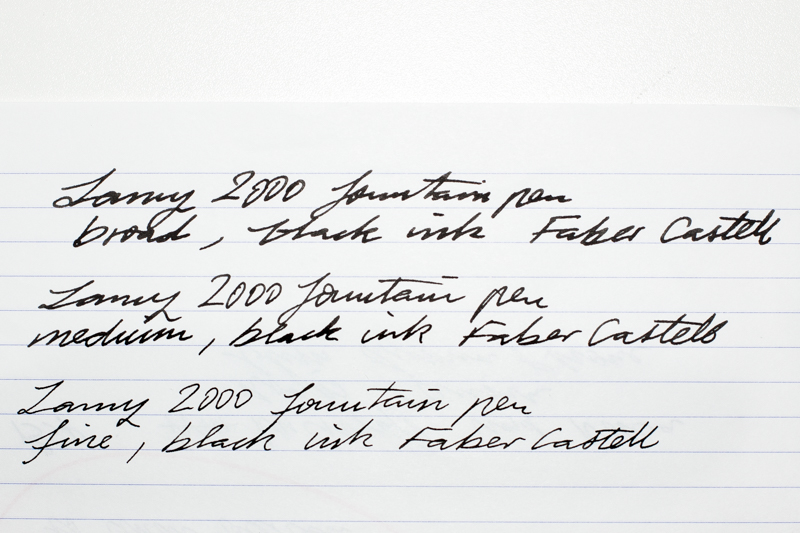 Lamy 2000 fountain pen
broad, black ink Faber Castell
Lamy 2000 fountain pen
medium, black ink Faber Castell
Lamy 2000 fountain pen
fine, black ink Faber Castell